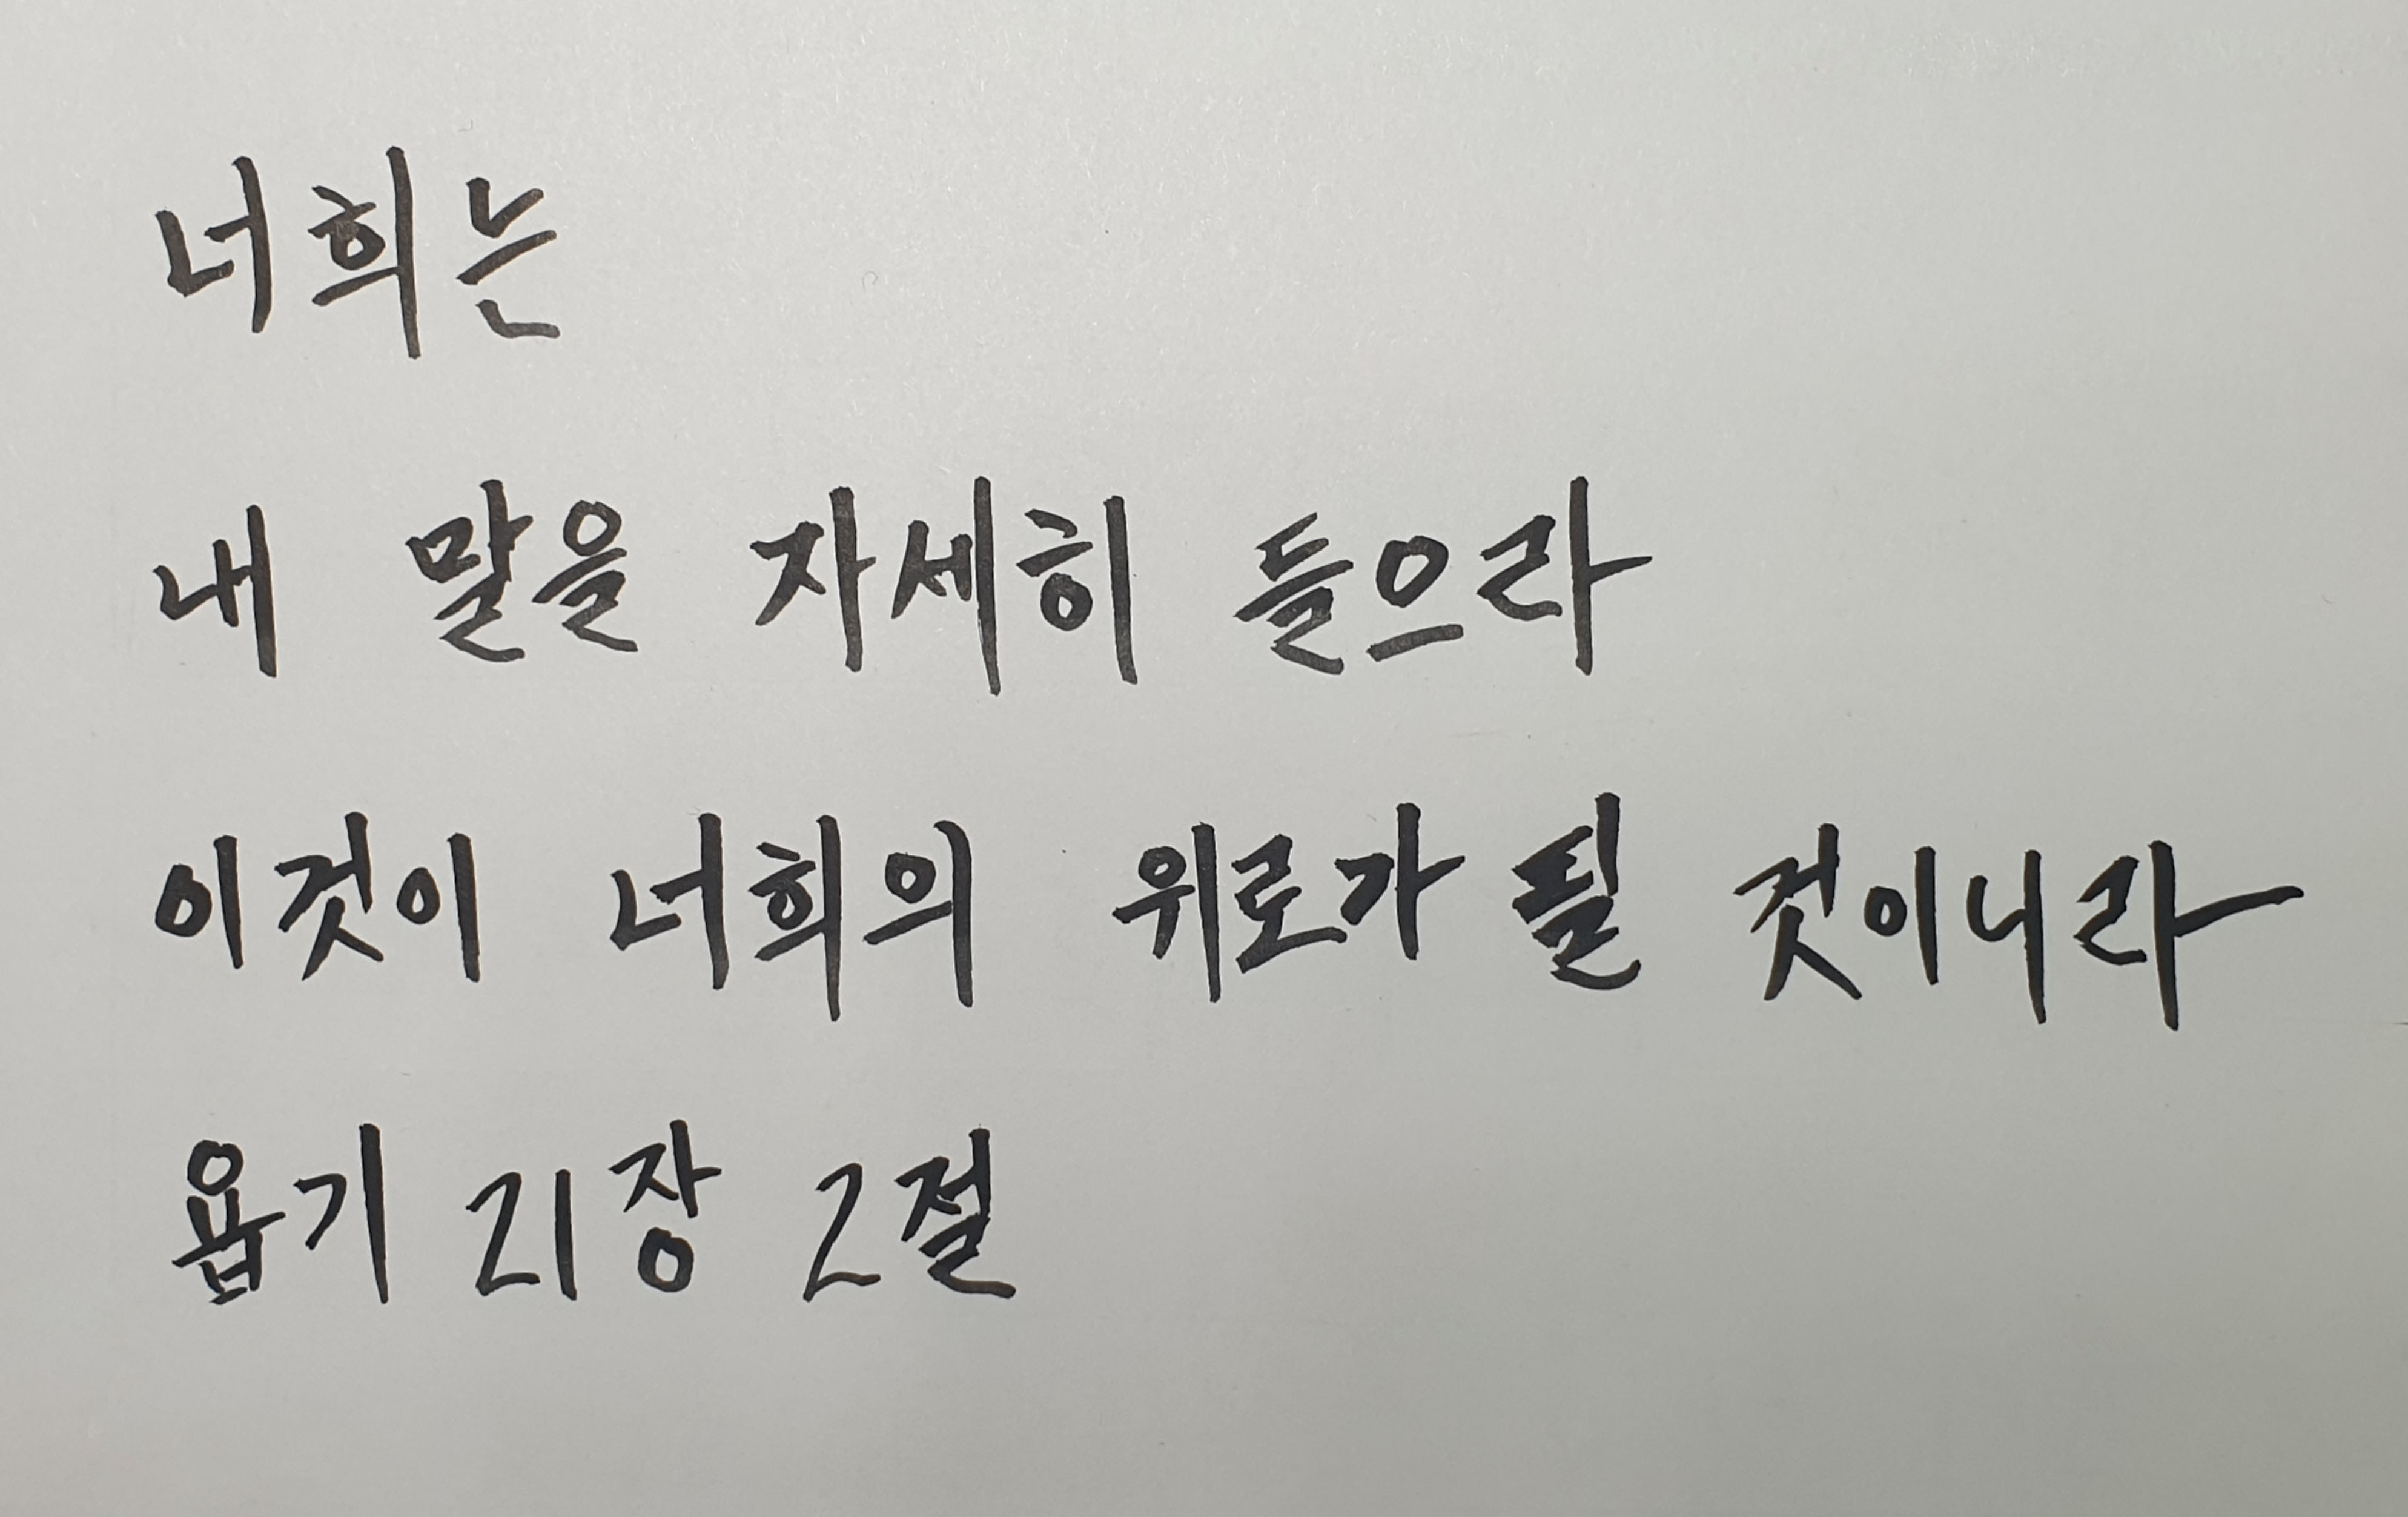 너희는
내 말을 자세히 들으라
이것이 너희의 위로가 될 것이니라
욥기 21장 2절